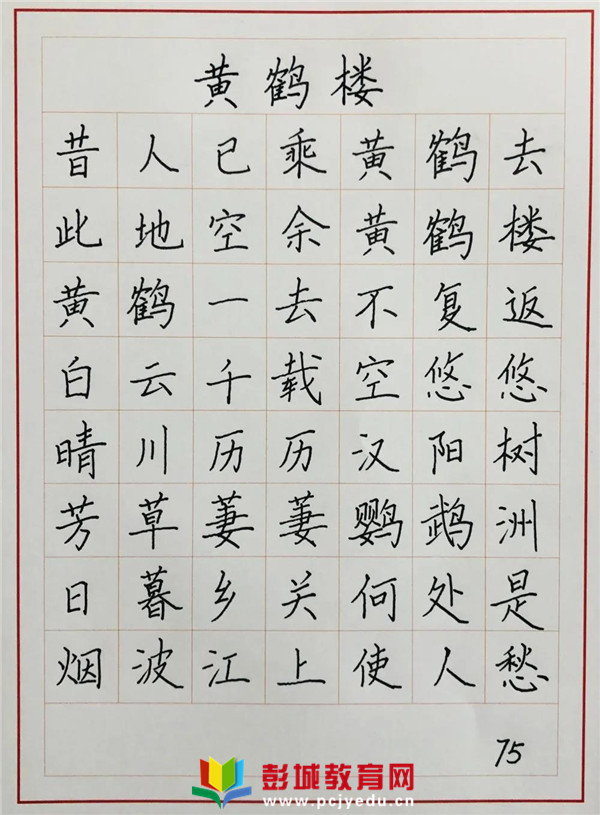 黄鹤楼
昔人已乘黄鹤去
此地空余黄鹤楼
黄鹤一去不复返
白云千载空悠悠
晴川历历汉阳树
芳草萋萋鹦鹉洲
日暮乡关何处是
烟波江上使人愁
75
彭城教育网
www.pcjyedu.cn